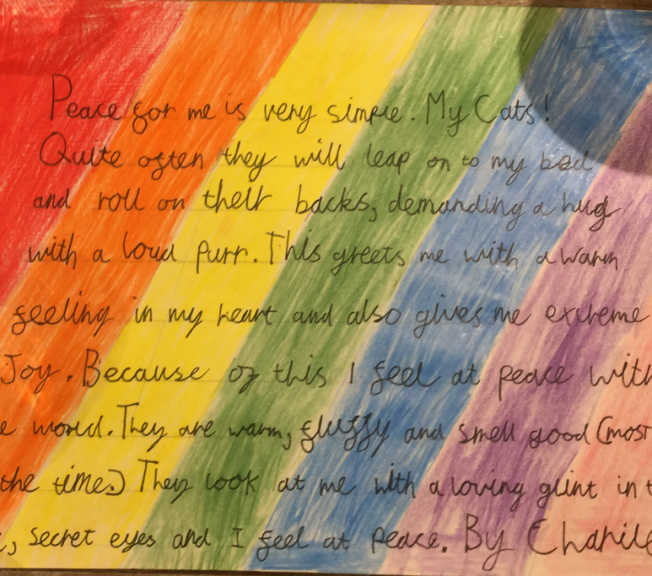 Peace for me is very simple. My Cats!
Quite often they will leap on to my bed
and roll on their backs, demanding a hug
with a loud purr. This greets me with a warm
feeling in my heart and also gives me extreme
Joy. Because of this I feel at peace with
world. They are warm, fluffy and smell good (most
the time.) They look at me with a loving glint in
secret eyes and I feel at peace. By